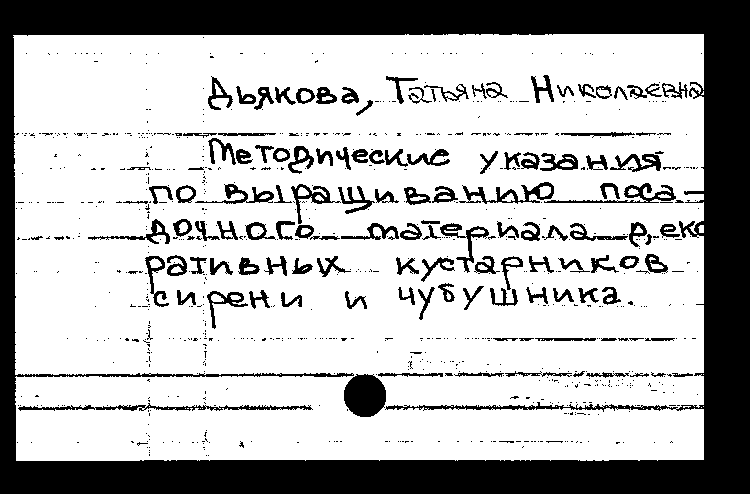 Дьякова, Татьяна Николаевна
Методические указания
по выращиванию поса-
дочного материала деко
ративных кустарников
сирени и чубушника.